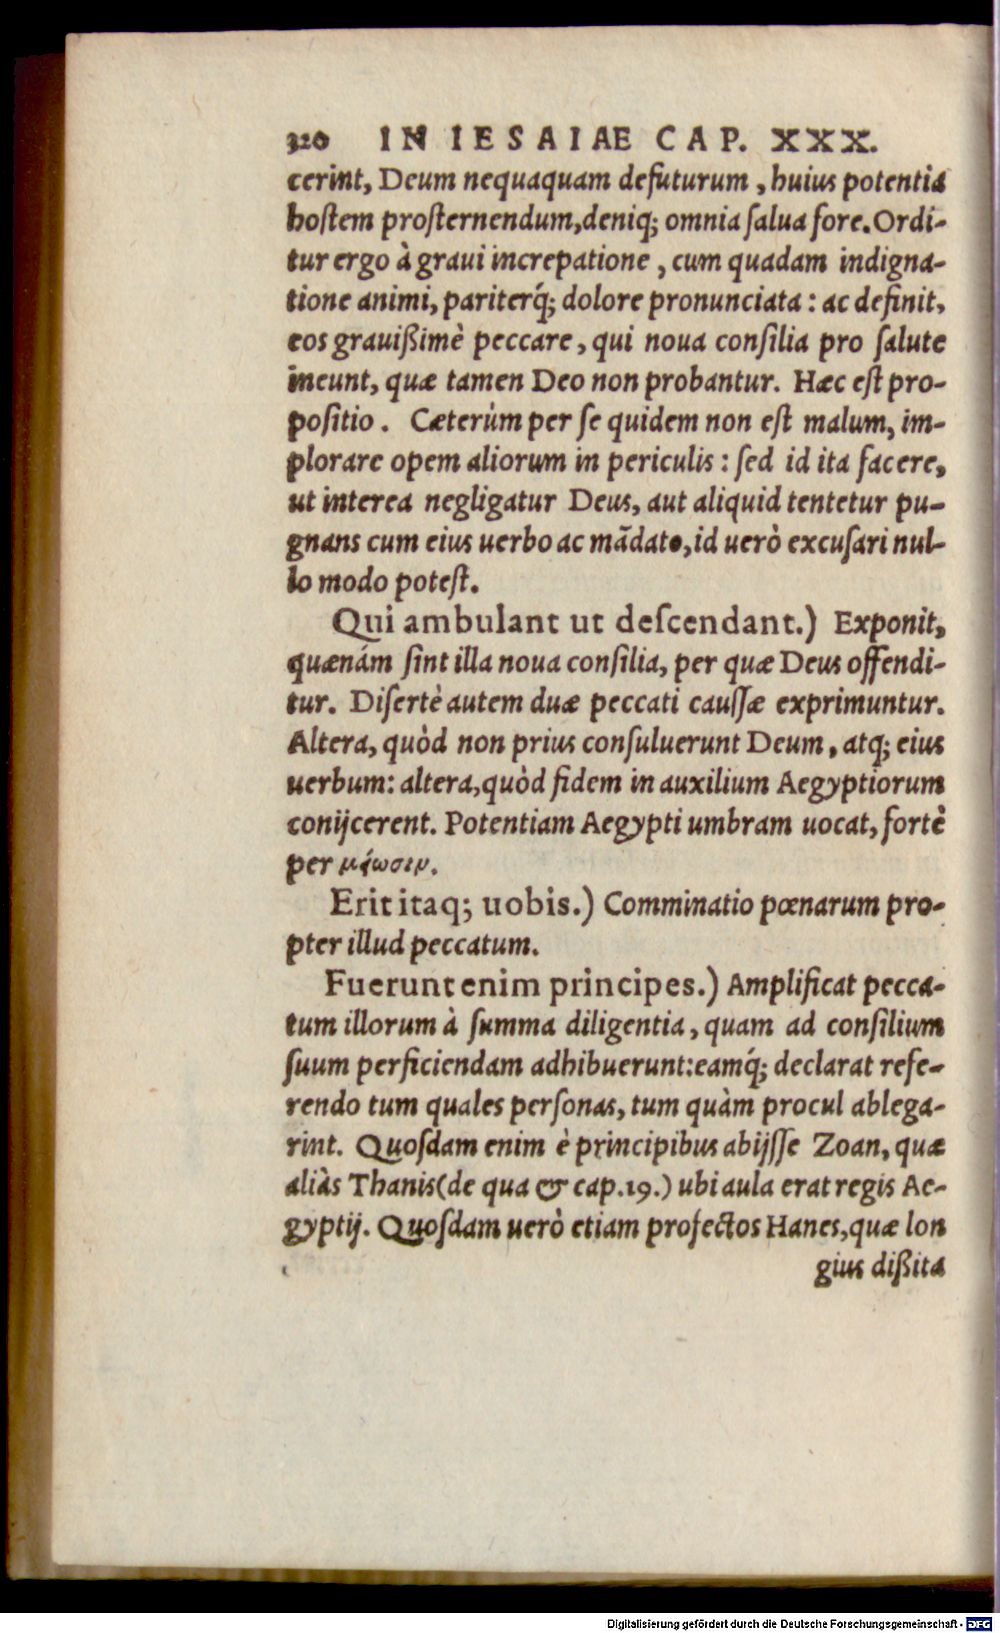 320 IN IESAIAE CAP. XXX.
cerint, Deum nequaquam defuturum, huius potentia
hoſtem proſternendum, deniq; omnia ſalua fore. Ordi-
tur ergo à graui increpatione, cum quadam indigna-
tione animi, pariterq́; dolore pronunciata: ac definit,
eos grauißimè peccare, qui noua conſilia pro ſalute
ineunt, quæ tamen Deo non probantur. Hæc eſt pro-
poſitio. Cæterùm per ſe quidem non eſt malum, im-
plorare opem aliorum in periculis: ſed id ita facere,
ut interea negligatur Deus, aut aliquid tentetur pu-
gnans cum eius uerbo ac mãdato, id uerò excuſari nul-
lo modo poteſt.
Qui ambulant ut deſcendant.) Exponit,
quænám ſint illa noua conſilia, per quæ Deus offendi-
tur. Diſertè autem duæ peccati cauſſæ exprimuntur.
Altera, quòd non prius conſuluerunt Deum, atq; eius
uerbum: altera, quòd fidem in auxilium Aegyptiorum
conijcerent. Potentiam Aegypti umbram uocat, fortè
per μείωσιν.
Erit itaq; uobis.) Comminatio pœnarum pro-
pter illud peccatum.
Fuerunt enim principes.) Amplificat pecca-
tum illorum à ſumma diligentia, quam ad conſilium
ſuum perficiendam adhibuerunt: eamq́; declarat refe-
rendo tum quales perſonas, tum quàm procul ablega-
rint. Quoſdam enim è principibus abijſſe Zoan, quæ
aliàs Thanis (de qua & cap. 19.) ubi aula erat regis Ae-
gyptij. Quoſdam uerò etiam profectos Hanes, quæ lon
gius dißita
Digitalisierung gefördert durch die Deutsche Forschungsgemeinschaft - DFG